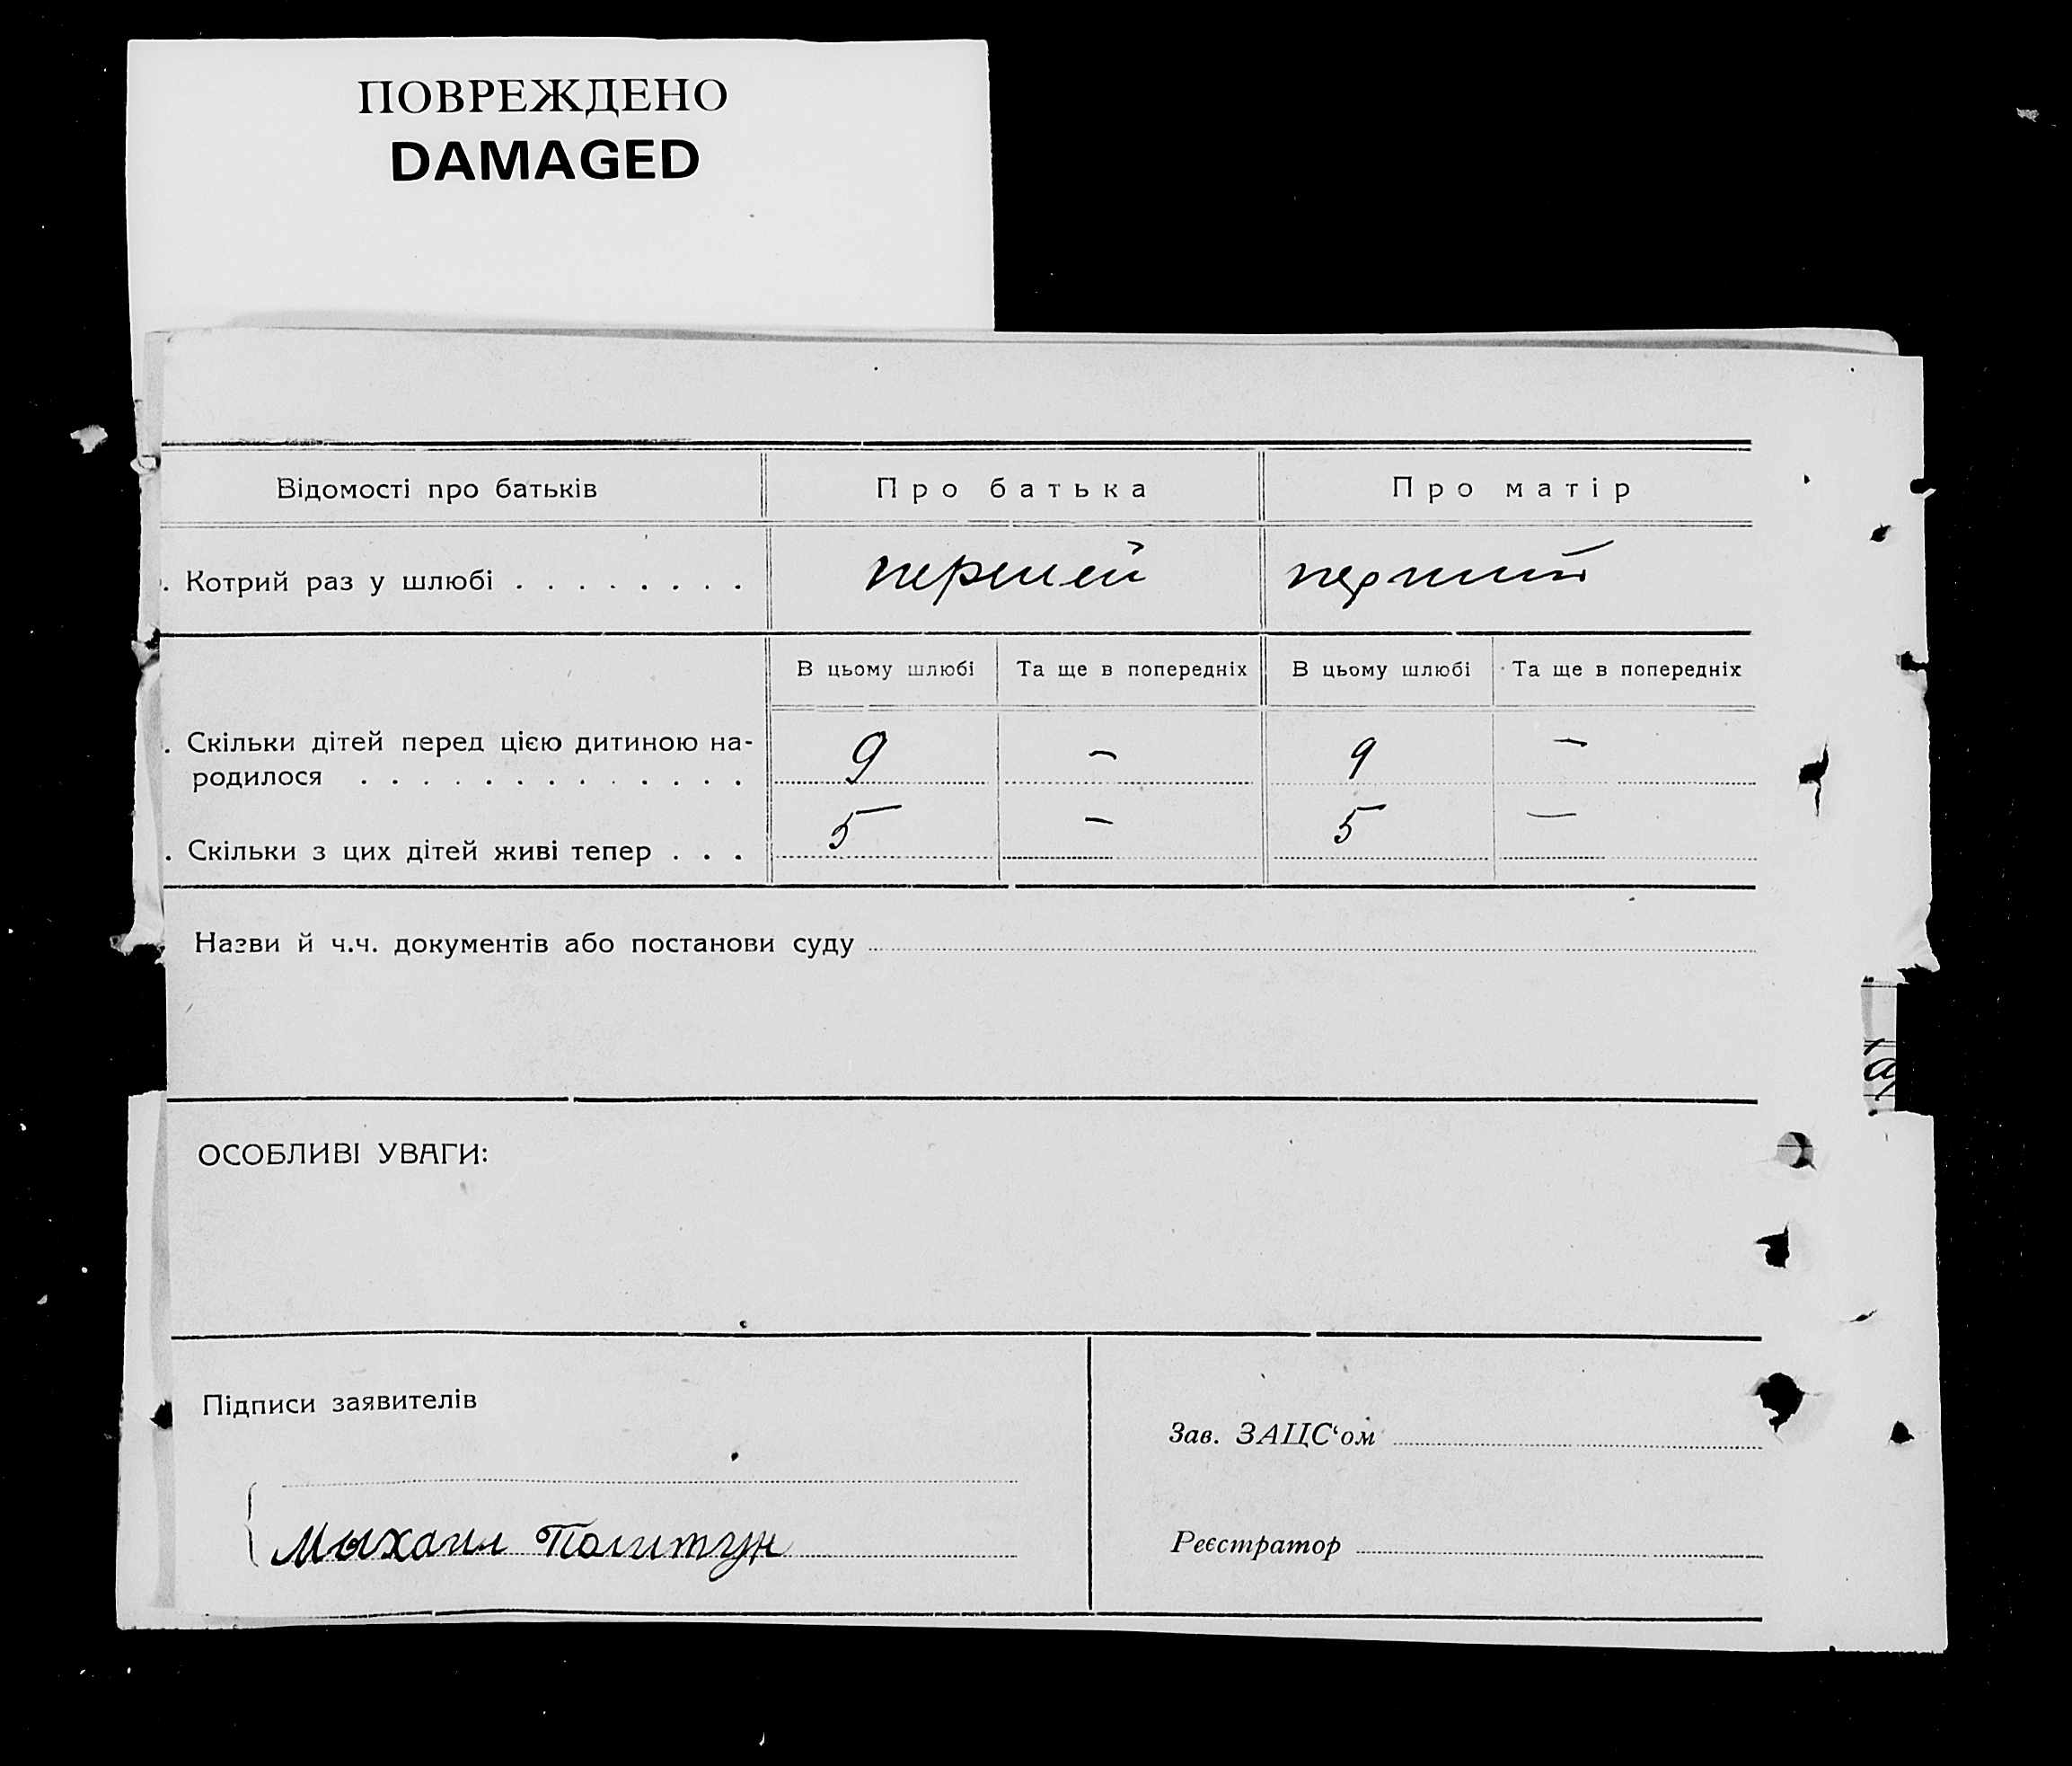 ПОВРЕЖДЕНО
DAMAGED
Відомості про батьків
Про батька
Про матір
. Котрий раз у шлюбі . . . . . . . .
першей
перший
В цьому шлюбі
Та ще в попередніх
В цьому шлюбі
Та ще в попередніх
. Скільки дітей перед цією дитиною на-
родилося . . . . . . . . . . . . .
9
–
9
–
. Скільки з цих дітей живі тепер . . .
5
–
5
–
Назви й ч.ч. документів або постанови суду
ОСОБЛИВІ УВАГИ:
Підписи заявителів
Зав. ЗАЦС‘ом
Мыхаил
Реєстратор